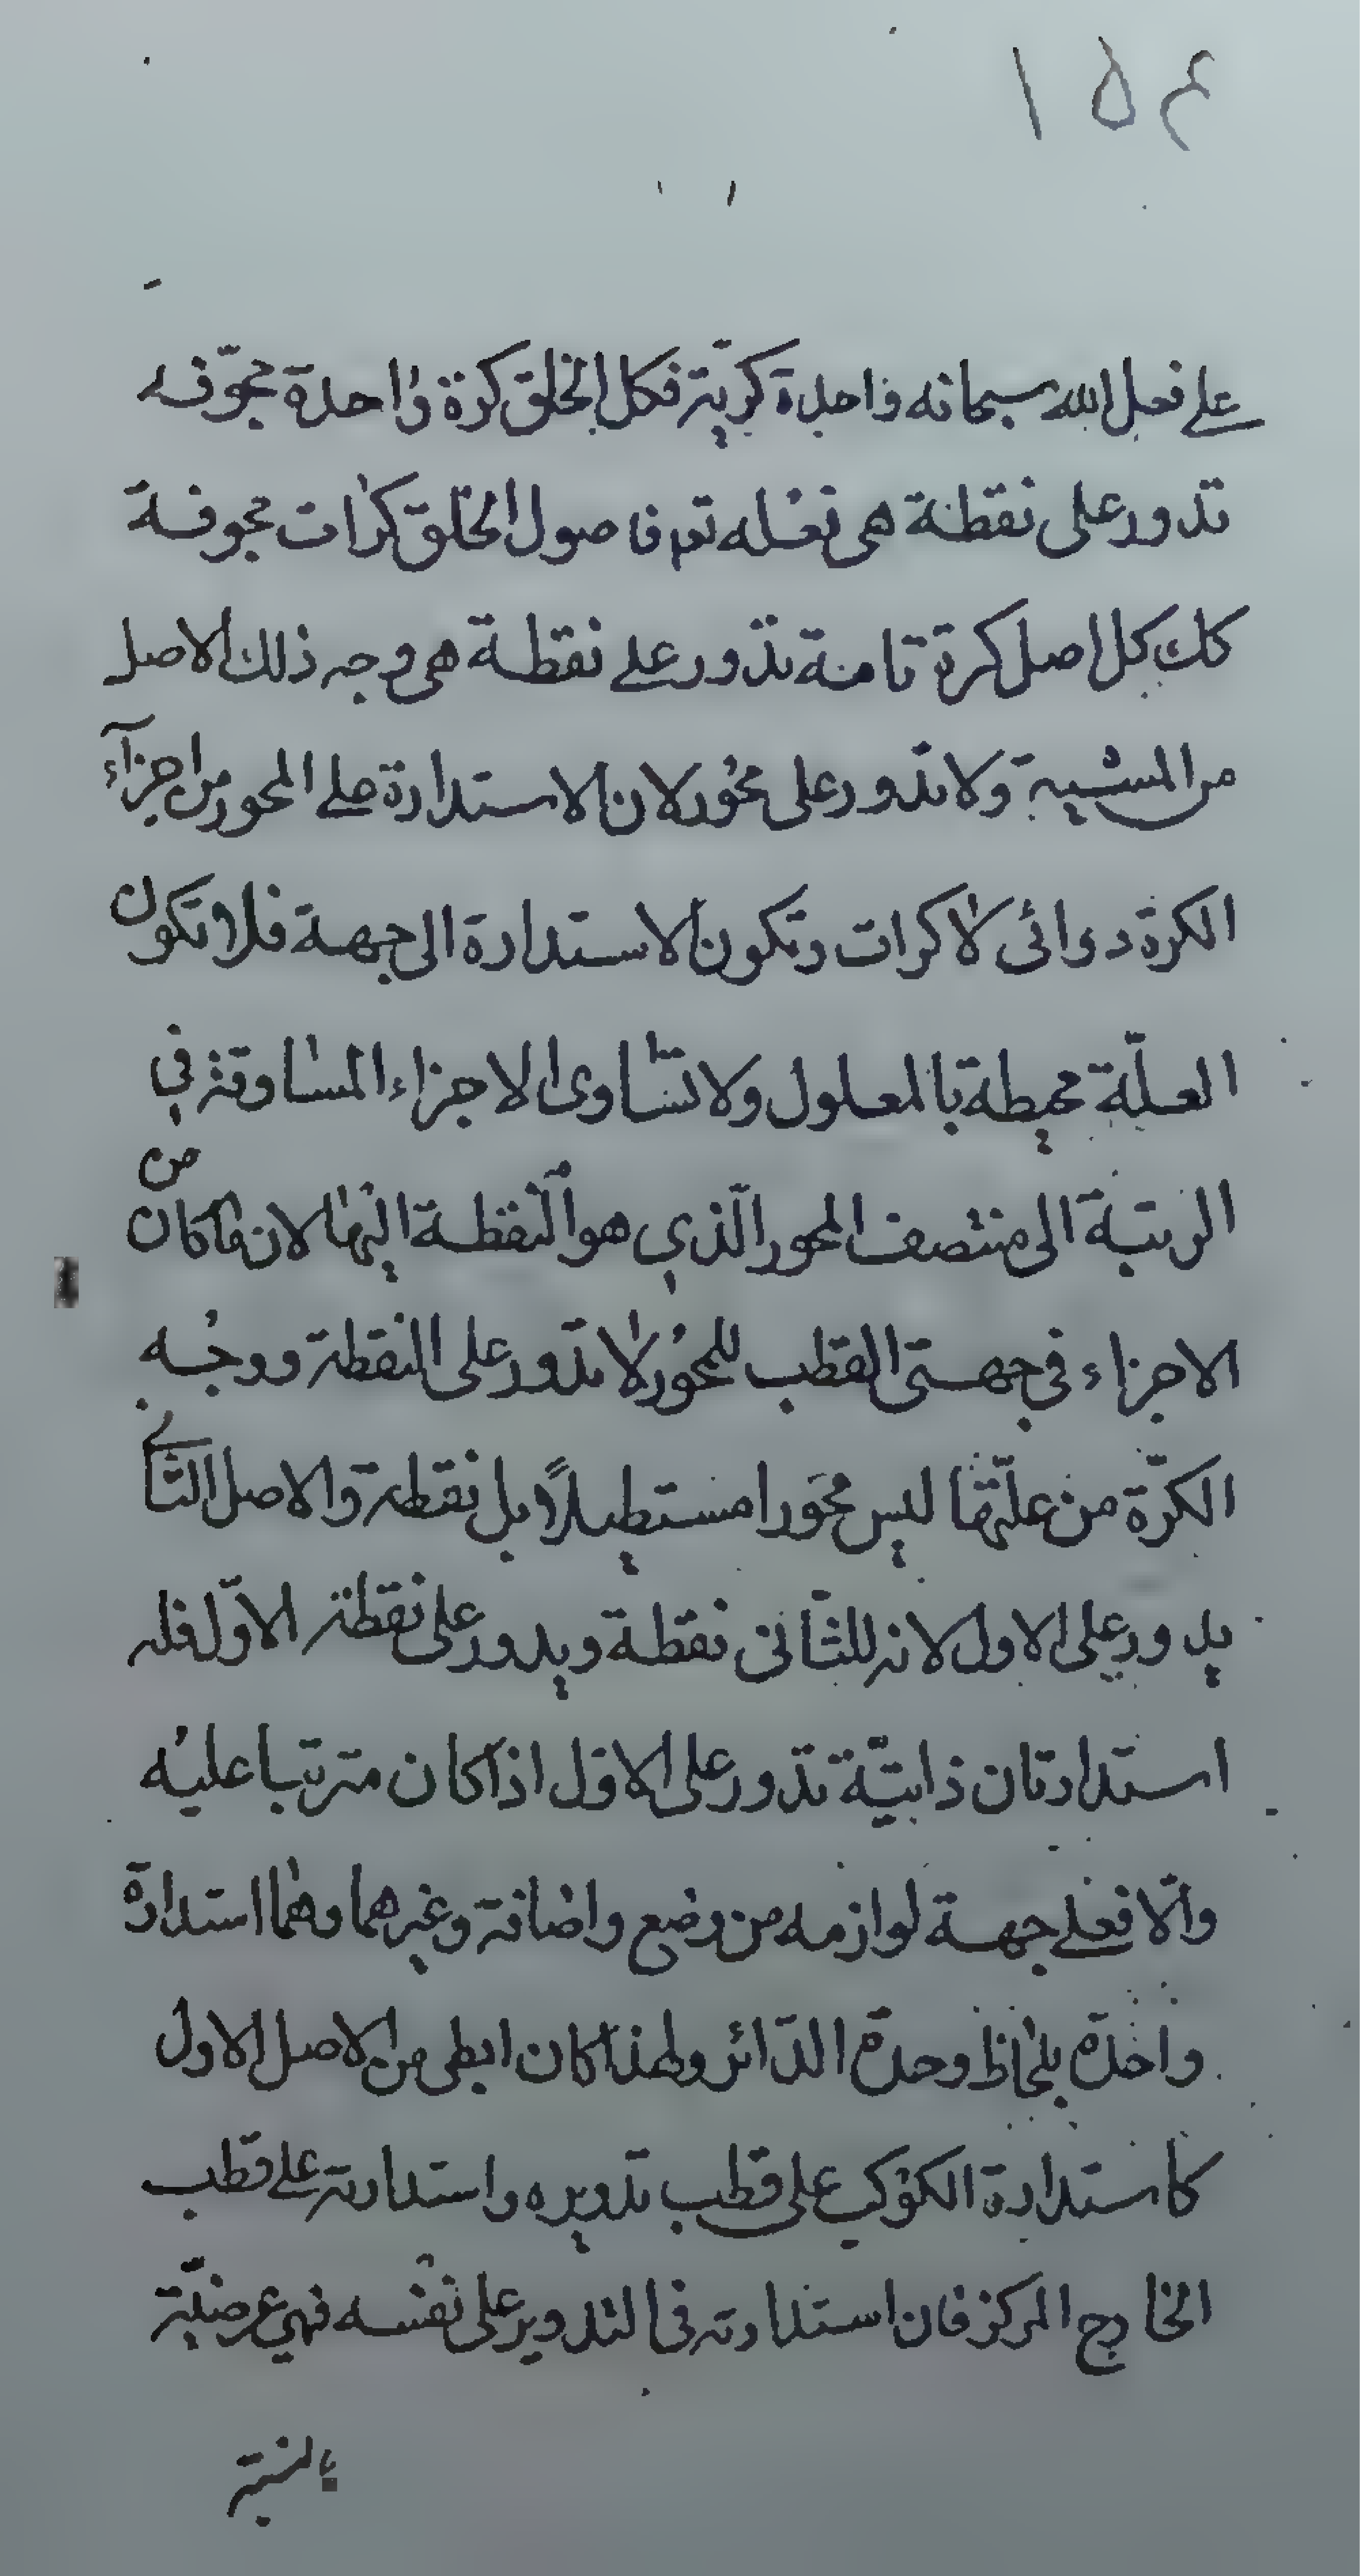 ١٥٤
على فعل الله سبحانه واحدة كرية فكل الخلق كرة واحدة مجوّفه
تدور على نقطة هى فعله تعم فاصول الخلق كرات مجوفة
كك كل اصل كرة تامة تدور على نقطة هى وجه ذلك الاصل
من المشية ولا تدور على محور لان الاستدارة على المحور من اجزآء
الكرة دوائى لا كرات وتكون الاستدارة الى جهة فلا تكون
العلّة محيطة بالمعلول ولا تتساوى الاجزاء المساوقة في
الرتبة الى منتصف المحور الّذي هو النقطة اليها لان ما كان من
الاجزاء فى جهتى القطب للمحور لا تدور على النقطة ووجه
الكرّة من علّتها ليس محورا مستطيلاً بل نقطة والاصل الثانے
يدور على الاول لانه للثّانى نقطة ويدور على نقطة الاوّل فله
استدارتان ذاتيّة تدور على الاول اذا كان مترتبا عليه
والّا فعلى جهة لوازمه من وضع واضافة وغيرهما وهما استدارة
واحدة بلحاظ وحدة الدّائر ولهذا كان ابطى من الاصل الاول
كاستدارة الكوكب على قطب تدويره واستدارته على قطب
الخارج المركز فان استدارته فى التدوير على نفسه فهي عرضيّة
بالنسبة